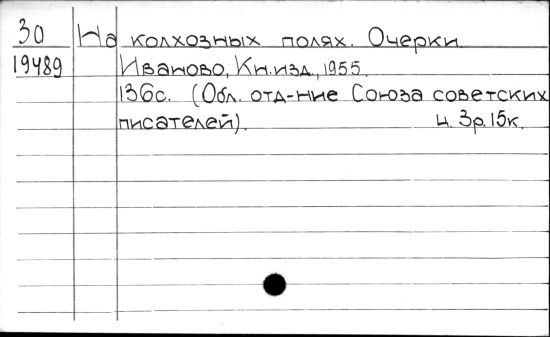 30 На колхозных полях. Очерки.
19489 Иваново, Кн.изд., 1955.
136с. (Обл. отд-ние Союза советских
писателей). ц. 3р.15к.